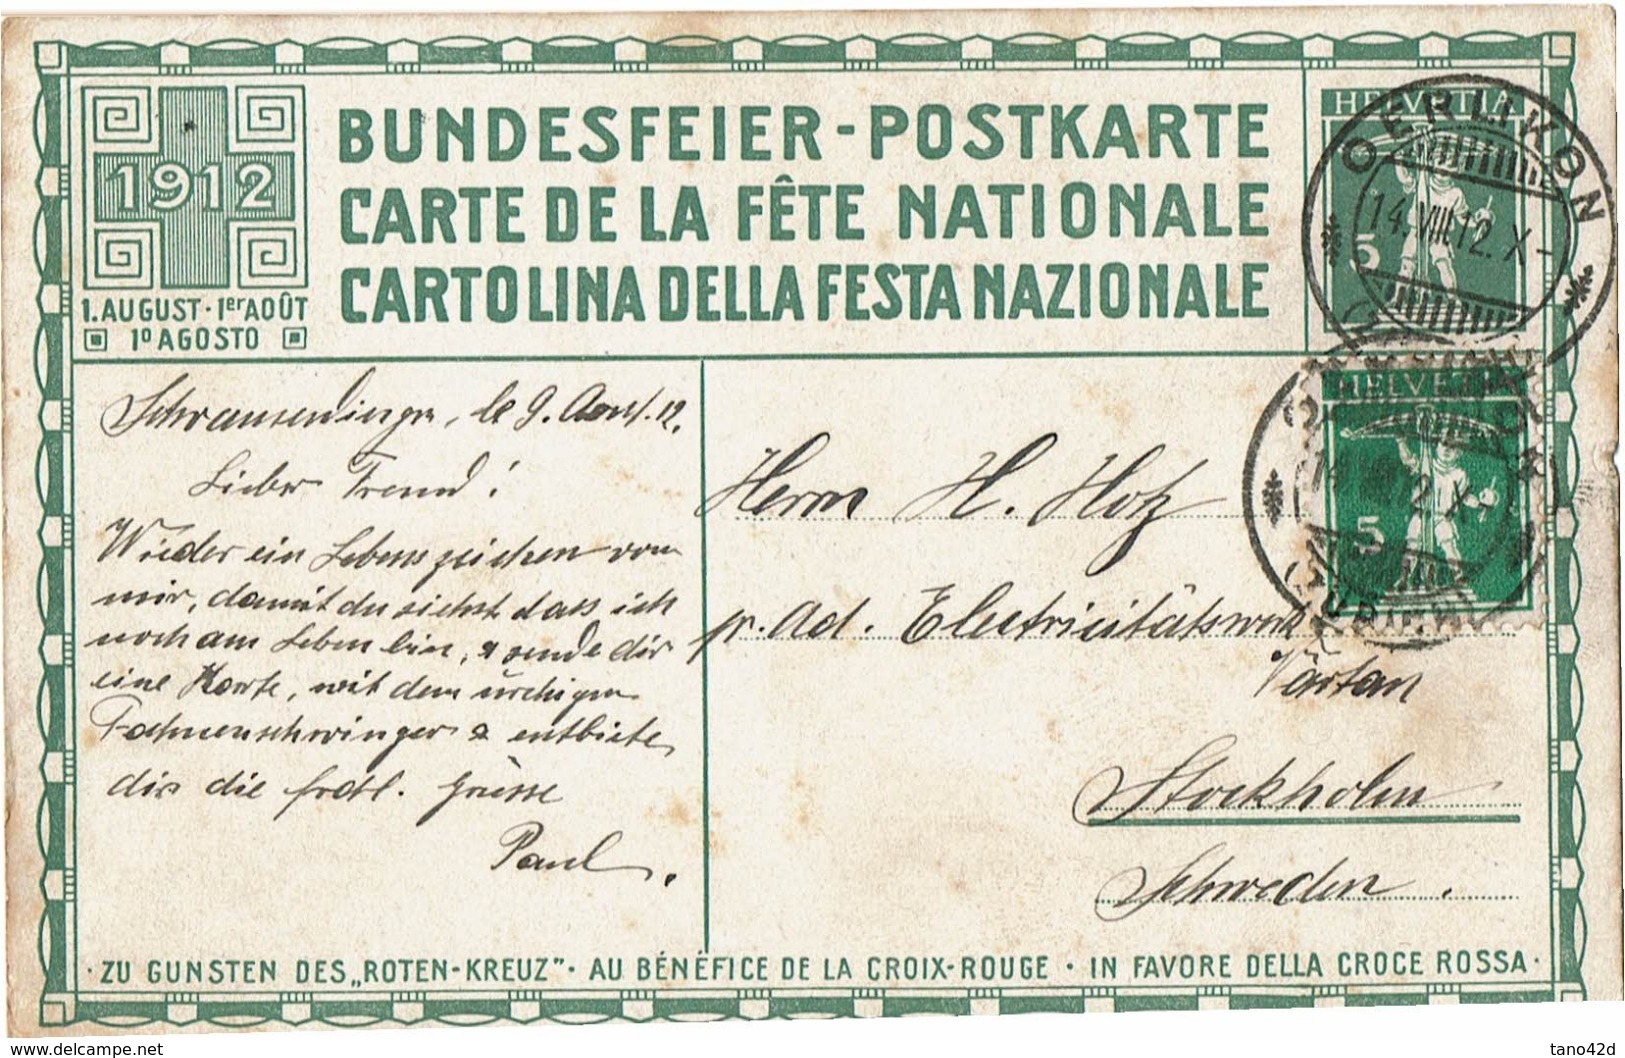 BUNDESFEIER-POSTKARTE
CARTE DE LA FÊTE NATIONALE
CARTOLINA DELLA FESTA NAZIONALE
1912
1. AUGUST · 1er AOÛT
1º AGOSTO
HELVETIA
5
OERLIKON
14.VIII.12. X-
HELVETIA
5
2. X-
Schwamendingen, le 9. Aout. 12.
Lieber Freund!
Wieder ein Lebenszeichen von
mir, damit du siehst dass ich
noch am Leben bin, & sende dir
eine Karte, mit dem urchigen
Fahnenschwinger & entbiete
dir die frdl. Grüsse
Paul.
Herrn H. Hotz
pr. Ad. Electricitätswerk
Värtan
Stockholm
Schweden.
· ZU GUNSTEN DES „ROTEN-KREUZ" · AU BÉNÉFICE DE LA CROIX-ROUGE · IN FAVORE DELLA CROCE ROSSA ·
www.delcampe.net
tano42d